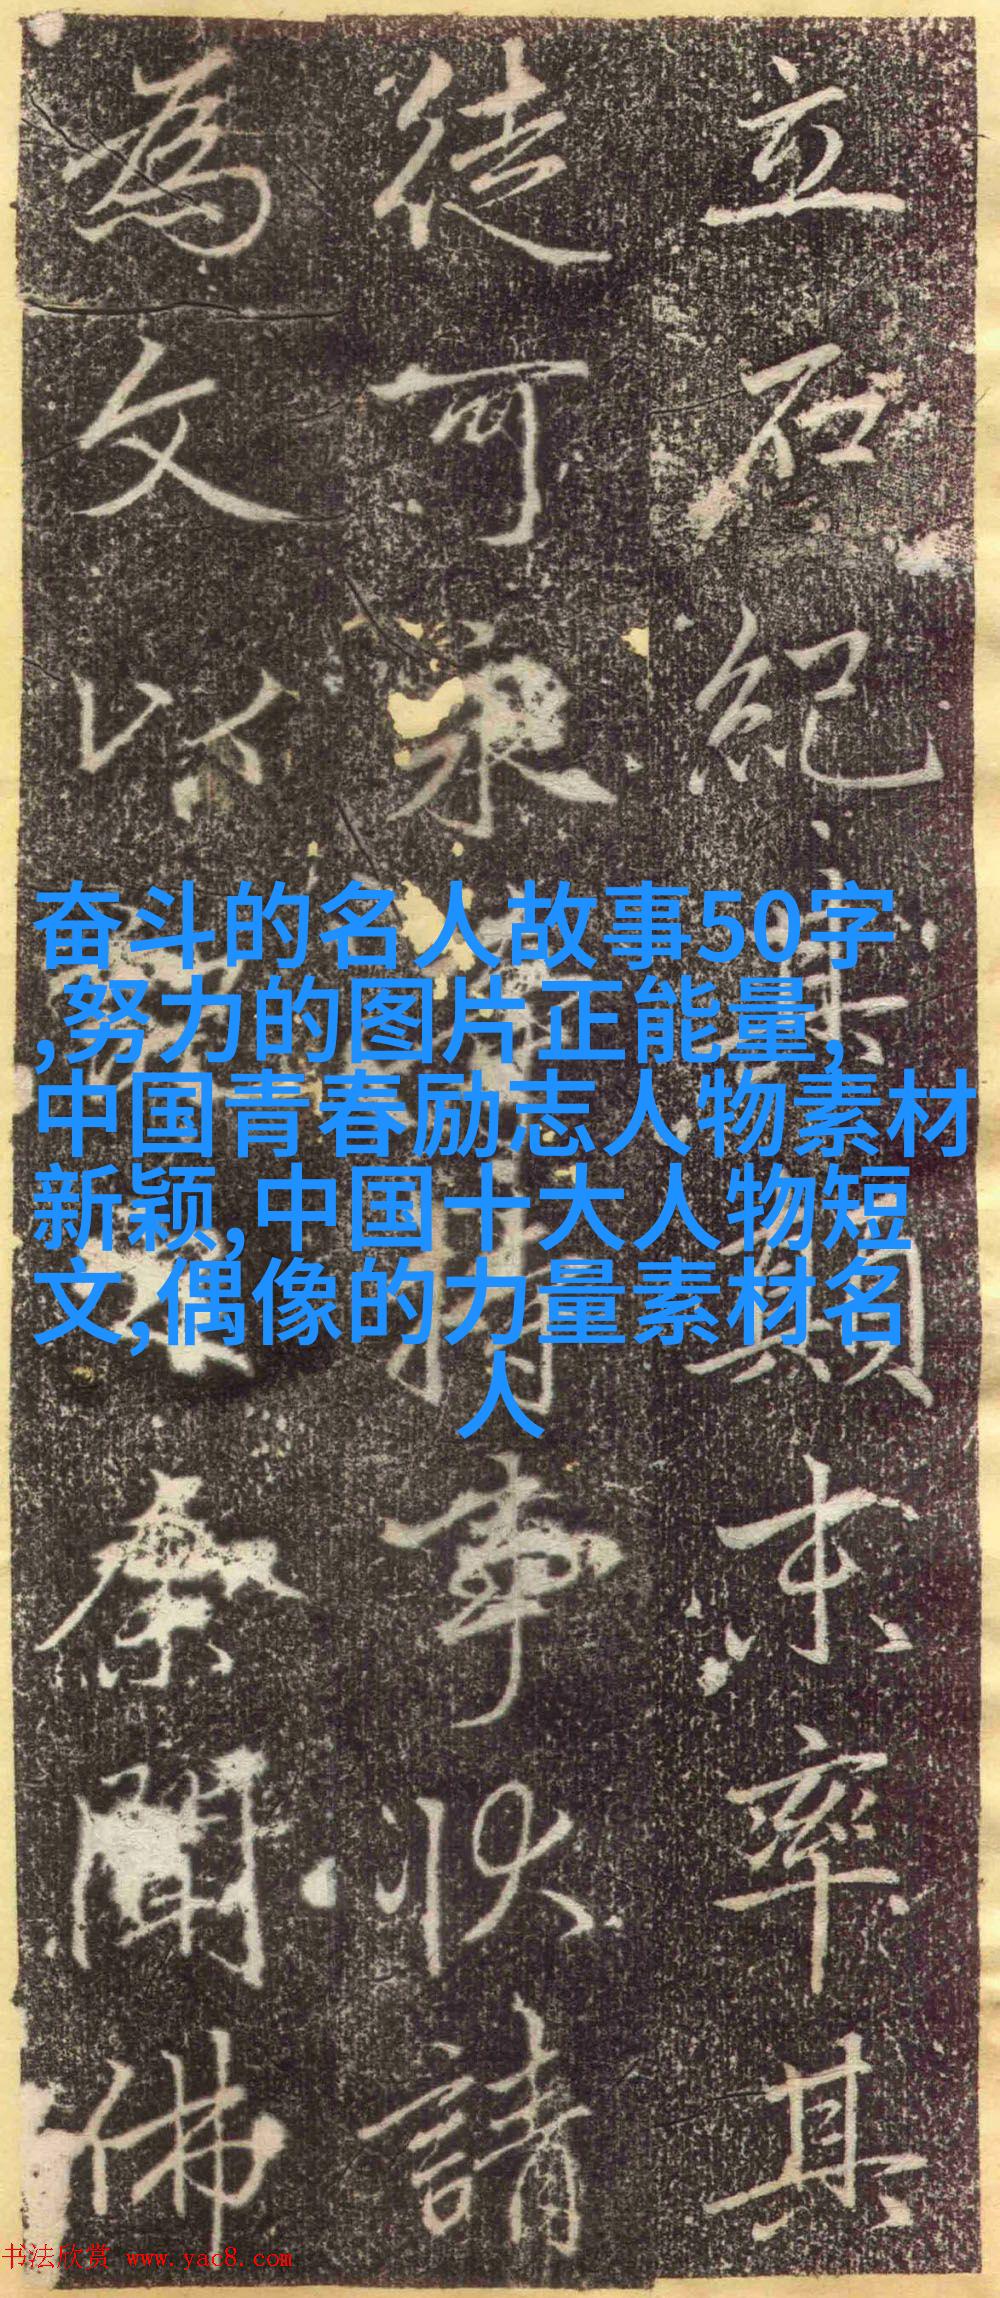 立石紀其顛末率其
徒可永持事狀請
為文以聞佛
奋斗的名人故事50字
,努力的图片正能量,
中国青春励志人物素材
新颖,中国十大人物短
文,偶像的力量素材名
人
书法欣赏 www.yac8.com